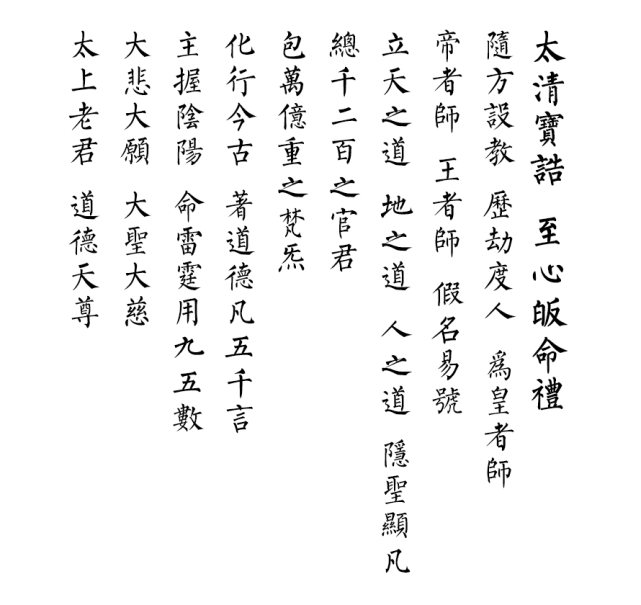 太清寶誥 至心皈命禮
隨方設教 歷劫度人 為皇者師
帝者師 王者師 假名易號
立天之道 地之道 人之道 隱聖顯凡
總千二百之官君
包萬億重之梵炁
化行今古 著道德凡五千言
主握陰陽 命雷霆用九五數
大悲大願 大聖大慈
太上老君 道德天尊